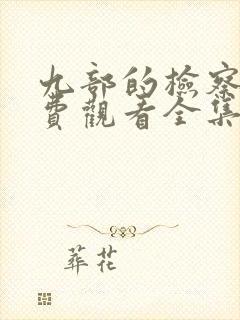 九部的檢察
費觀看全集
葬花